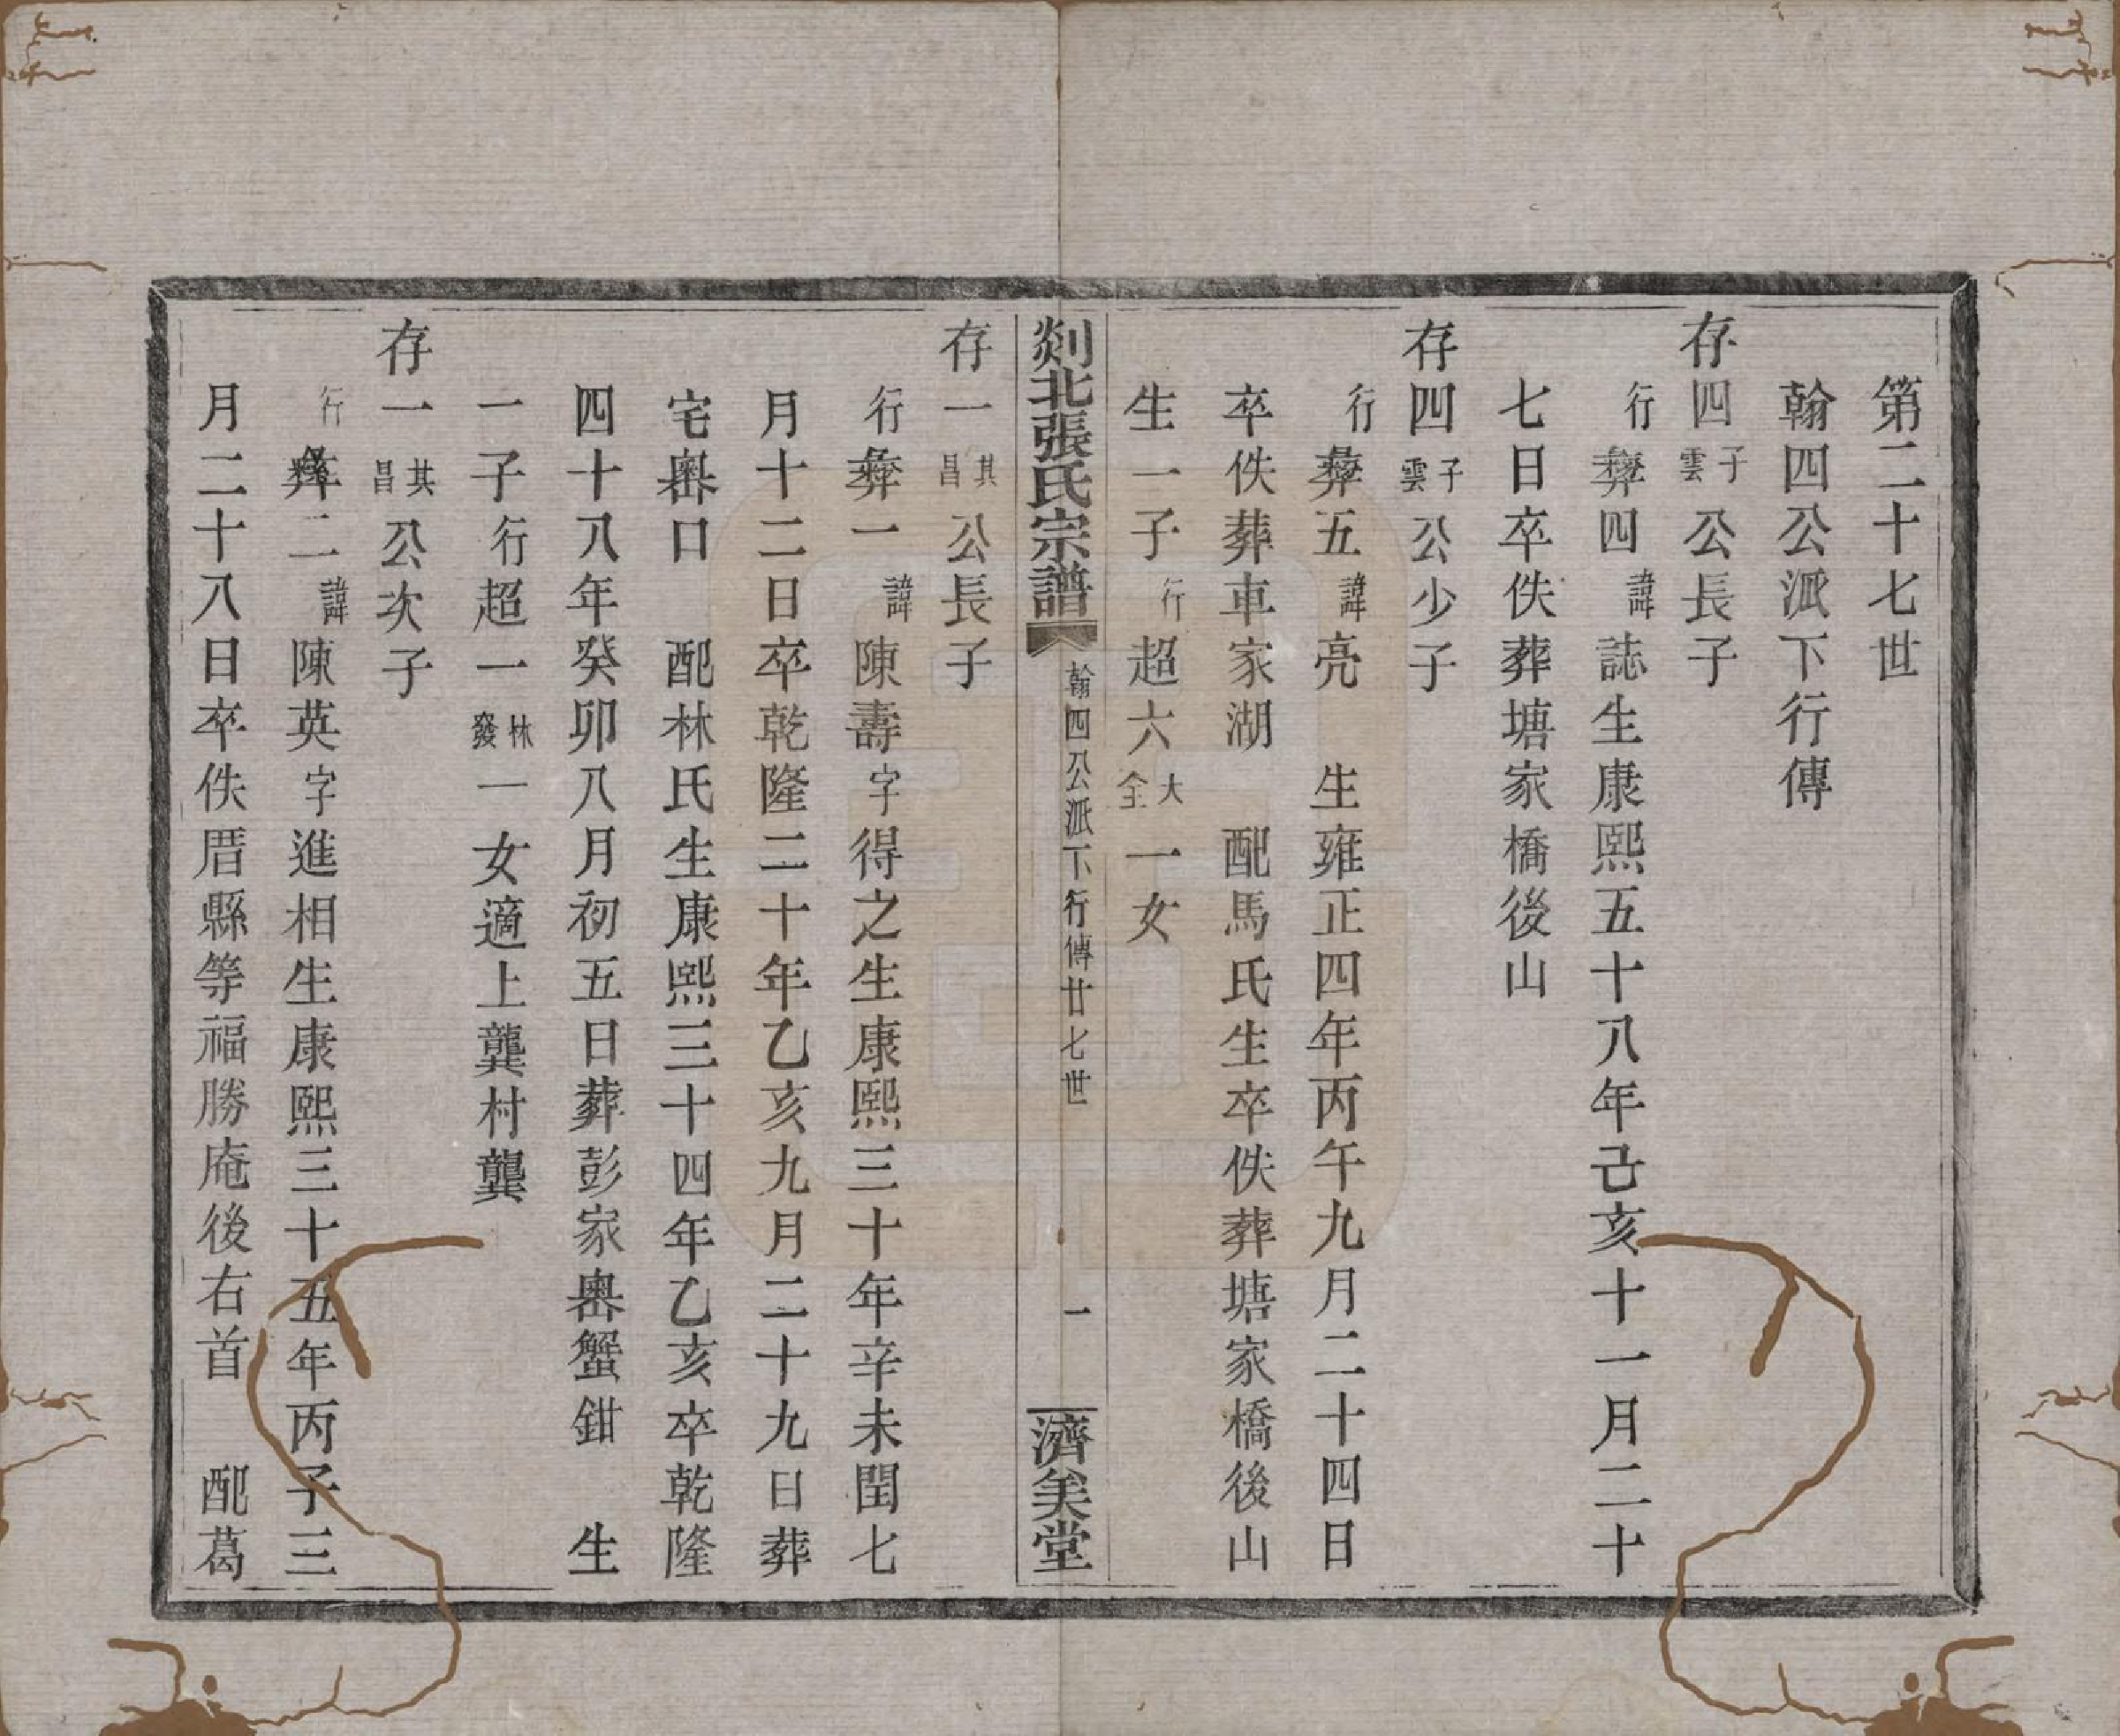 第二十七世
翰四公派下行傳
存四子雲公長子
行彝四諱誌生康熙五十八年己亥十一月二十
七日卒佚葬塘家橋後山
存四子雲公少子
行彝五諱亮　生雍正四年丙午九月二十四日
卒佚葬車家湖　配馬氏生卒佚葬塘家橋後山
生一子行超六大全一女
剡北張氏宗譜　翰四公派下行傳廿七世　一　濟美堂
存一其昌公長子
行彝一諱陳壽字得之生康熙三十年辛未閏七
月十二日卒乾隆二十年乙亥九月二十九日葬
宅嶴口　配林氏生康熙三十四年乙亥卒乾隆
四十八年癸卯八月初五日葬彭家嶴蟹鉗　生
一子行超一林發一女適上龔村龔
存一其昌公次子
行彝二諱陳英字進相生康熙三十五年丙子三
月二十八日卒佚厝縣等福勝庵後右首　配葛